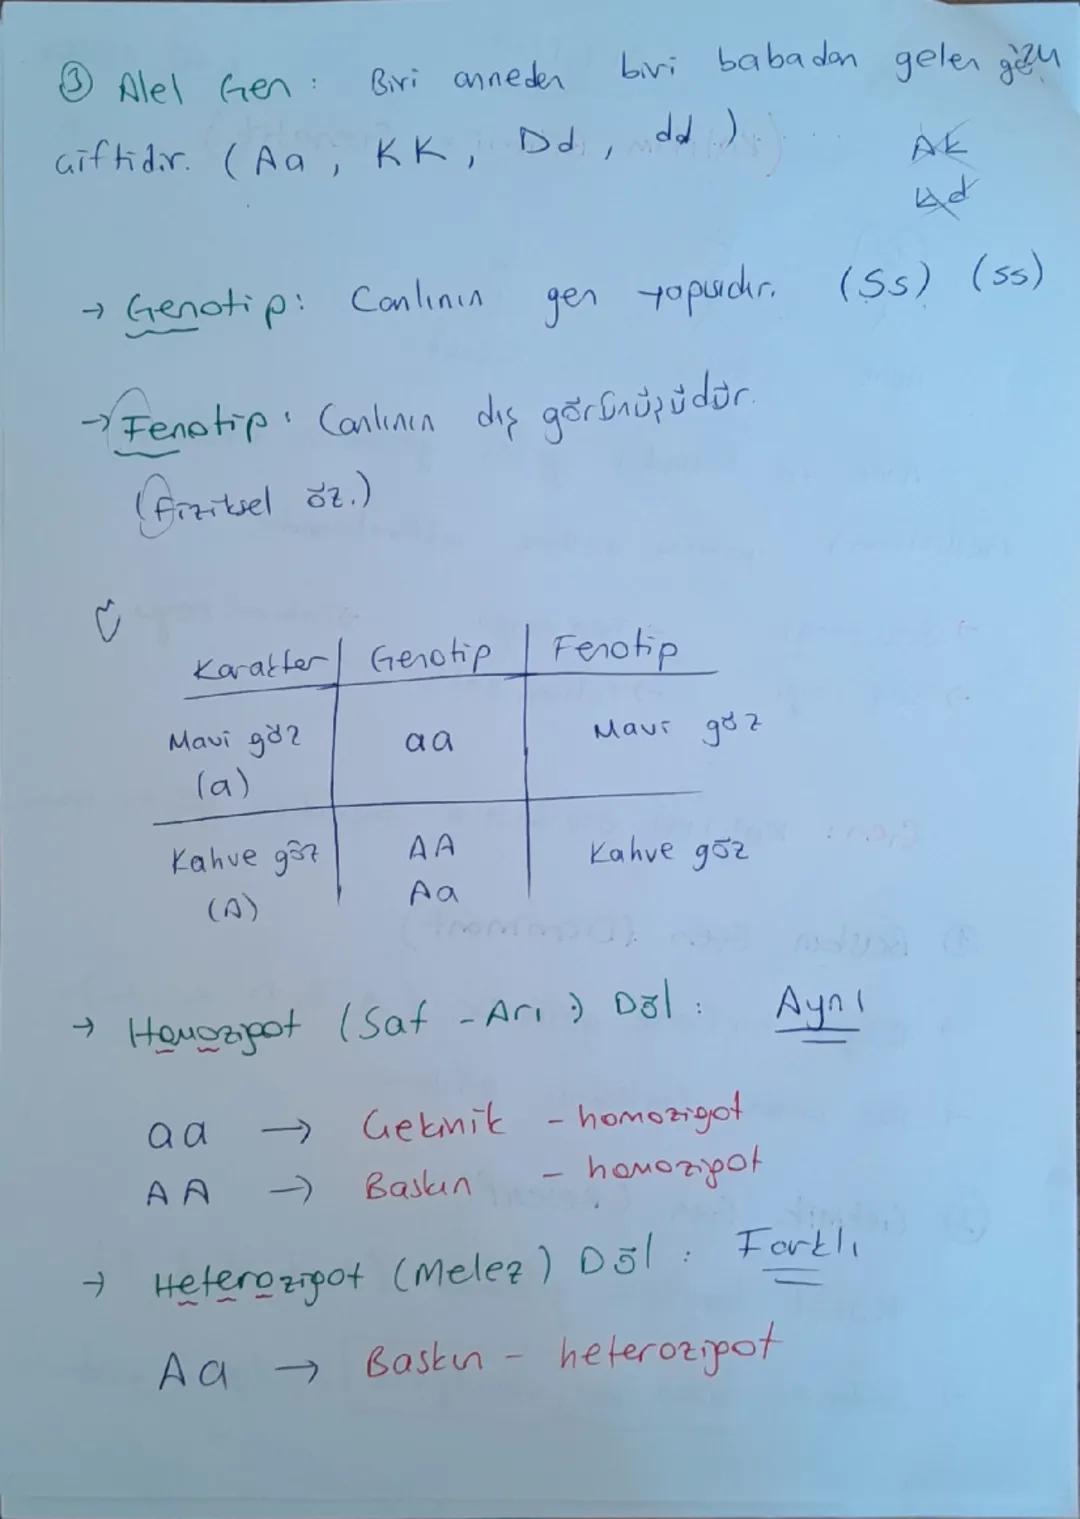 ③ Alel Gen : Biri anneden biri babadan gelen gen
çiftidir. (Aa, KK, Dd, dd) ...
AK
Kd
→ Genotip: Canlının gen yapısıdır. (Ss) (ss)
→ Fenotip: Canlının dış görünüşüdür.
(fiziksel öz.)
Karakter Genotip Fenotip
Mavi göz aa Mavi göz
(a)
Kahve göz AA Kahve göz
(A) Aa
→ Homozigot (Saf - Arı :) Döl : Aynı
aa → Çekinik - homozigot
AA → Baskın - homozigot
→ Heterozigot (Melez) Döl : Farklı
Aa → Baskın - heterozigot